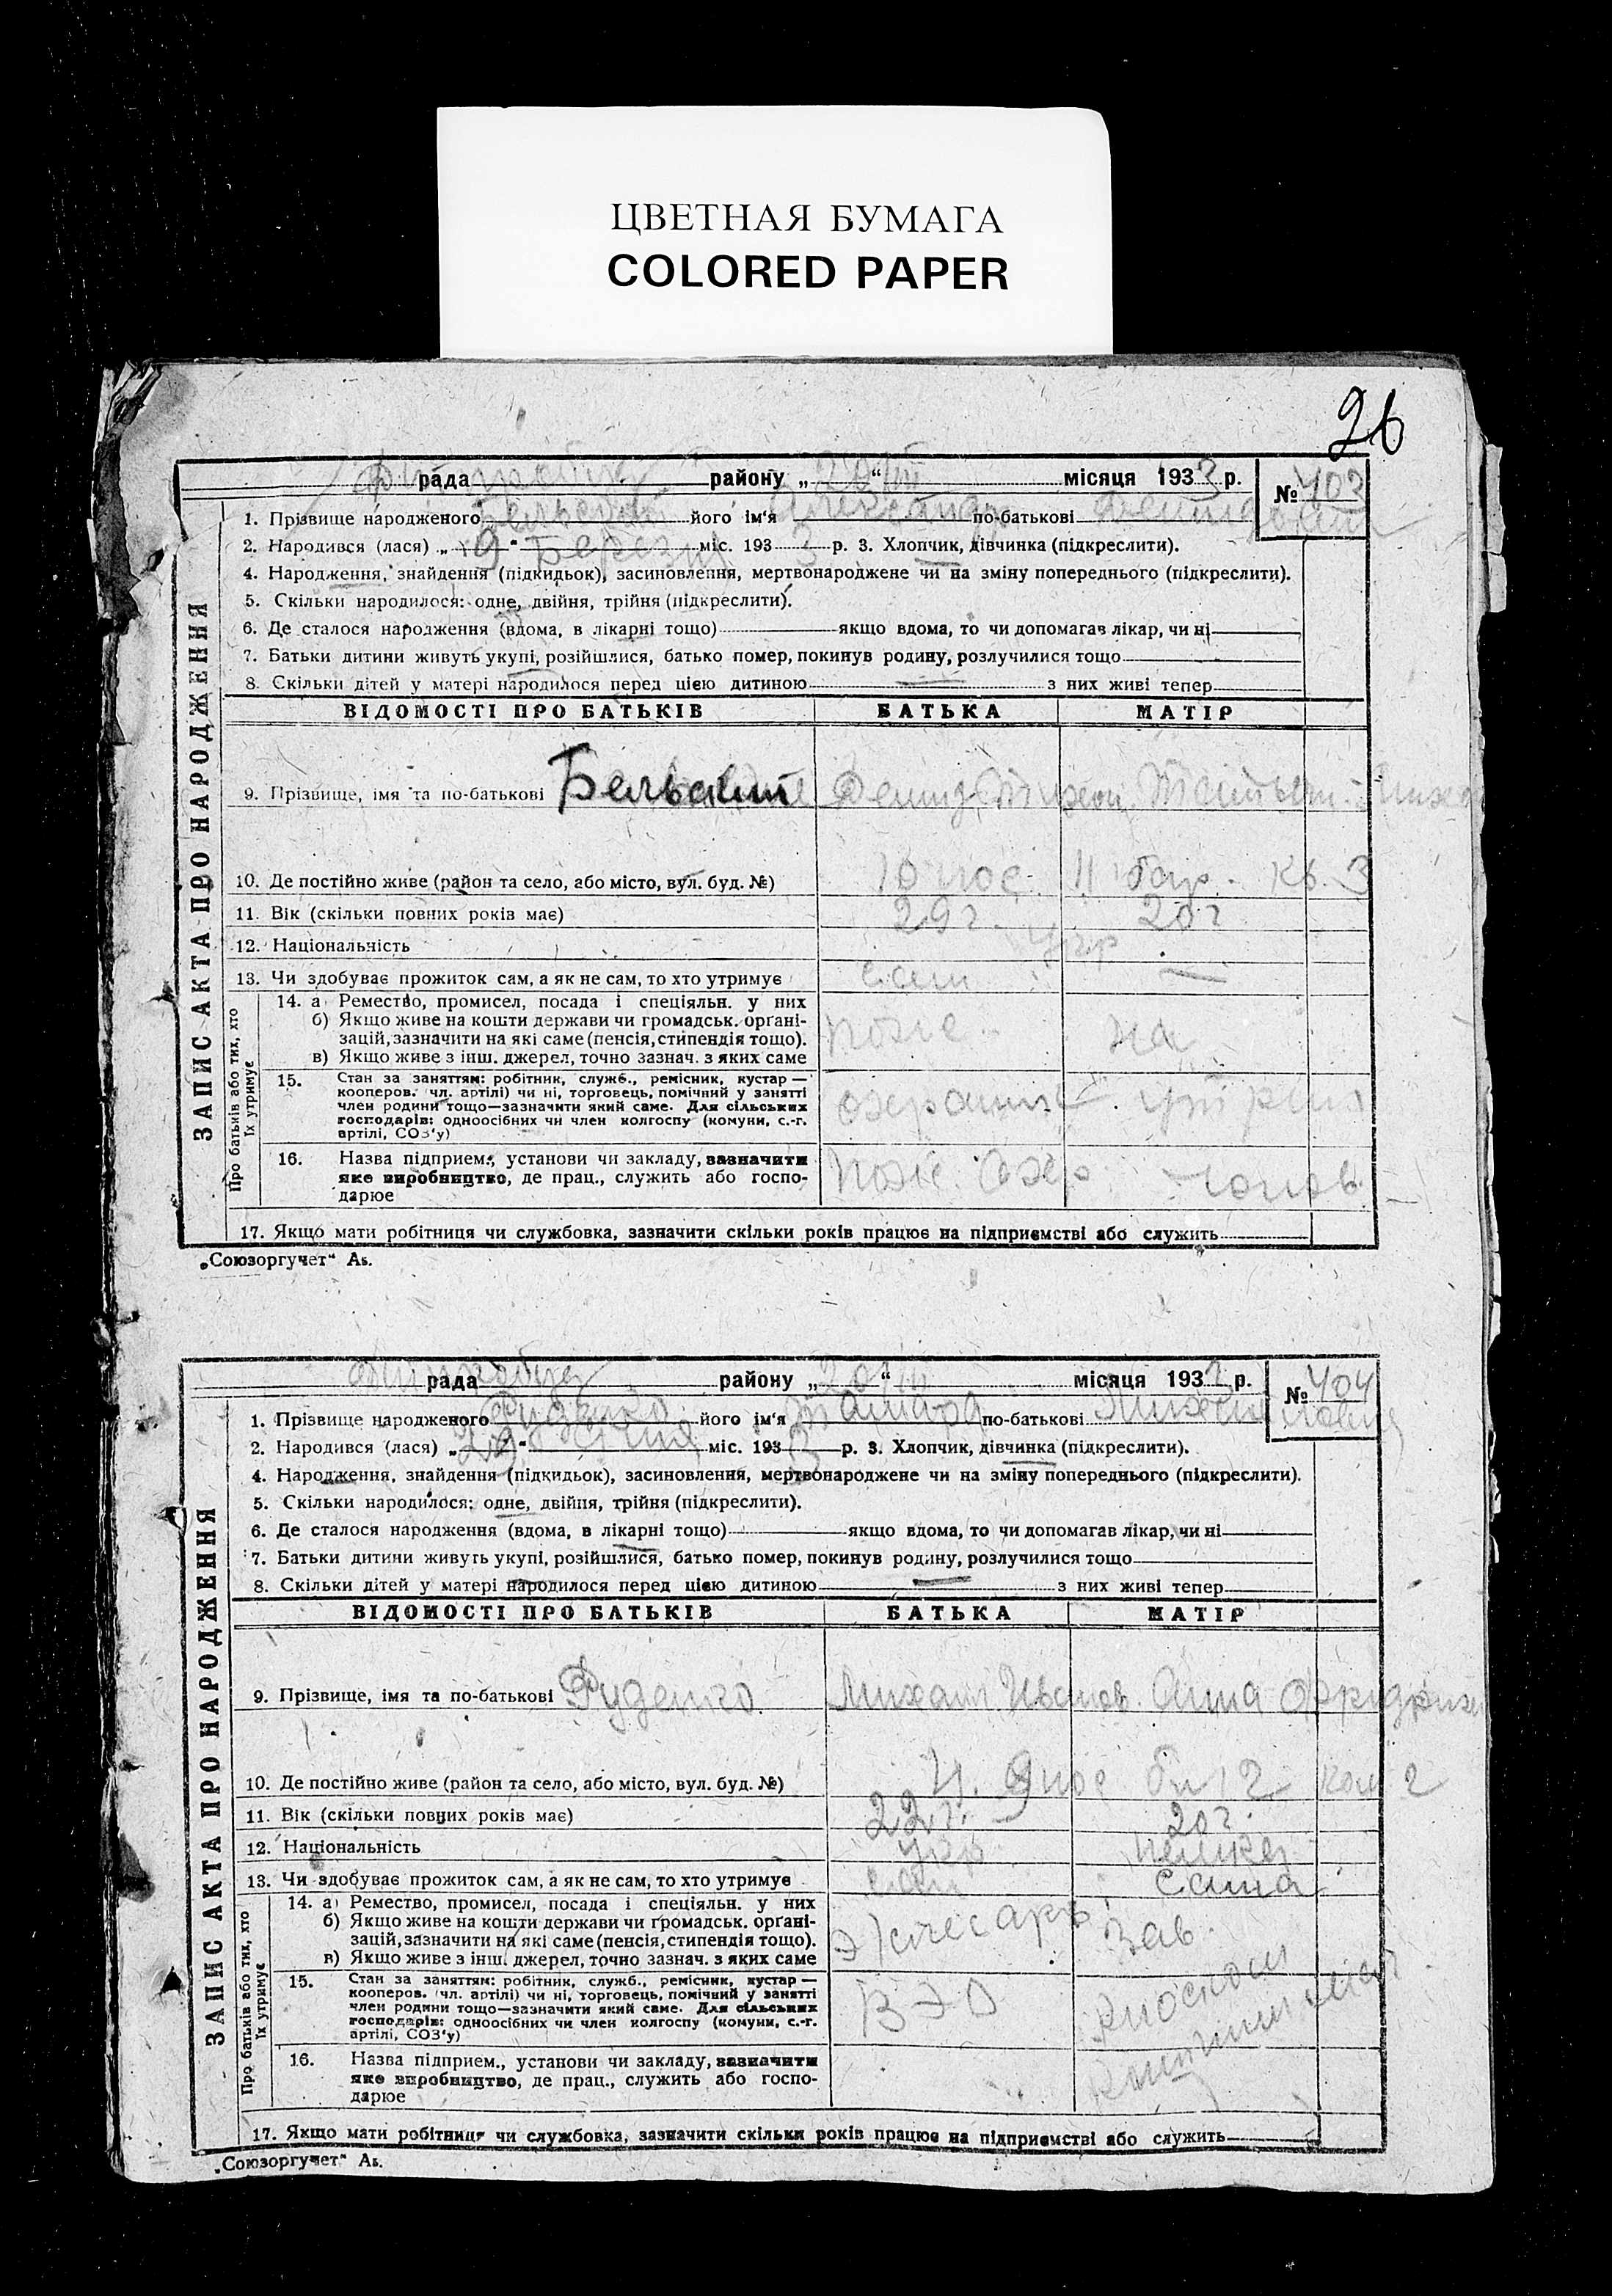 ЦВЕТНАЯ БУМАГА
COLORED PAPER
26
рада району „20/III“ місяця 1933 р. № 403
1. Прізвище народженого його ім'я по-батькові
2. Народився (лася) „ 9 “ Березня міс. 193 3 р. 3. Хлопчик, дівчинка (підкреслити).
4. Народження, знайдення (підкидьок), засиновлення, мертвонароджене чи на зміну попереднього (підкреслити).
5. Скільки народилося: одне, двійня, трійня (підкреслити).
6. Де сталося народження (вдома, в лікарні тощо) якщо вдома, то чи допомагав лікар, чи ні
7. Батьки дитини живуть укупі, розійшлися, батько помер, покинув родину, розлучилися тощо
8. Скільки дітей у матері народилося перед цією дитиною з них живі тепер
ЗАПИС АКТА ПРО НАРОДЖЕННЯ
ВІДОМОСТІ ПРО БАТЬКІВ БАТЬКА МАТІР
9. Прізвище, імя та по-батькові
10. Де постійно живе (район та село, або місто, вул. буд. №) 10 пос. 11 бар. кв. 3
11. Вік (скільки повних років має) 29 г. 20 г
12. Національність укр
13. Чи здобуває прожиток сам, а як не сам, то хто утримує сам —
Про батьків або тих, хто їх утримує
14. а) Ремество, промисел, посада і спеціяльн. у них
б) Якщо живе на кошти держави чи громадськ. орґані-
зацій, зазначити на які саме (пенсія, стипендія тощо).
в) Якщо живе з інш. джерел, точно зазнач. з яких саме
15. Стан за заняттям: робітник, служб., ремісник, кустар —
кооперов. чл. артілі) чи ні, торговець, помічний у занятті
член родини тощо—зазначити який саме. Для сільських
господарів: одноосібних чи член колгоспу (комуни, с.-г.
артілі, СОЗ'у)
16. Назва підприєм., установи чи закладу, зазначити
яке виробництво, де прац., служить або госпо-
дарює
17. Якщо мати робітниця чи службовка, зазначити скільки років працює на підприємстві або служить
„Союзоргучет“ Аб.
рада району „20/III“ місяця 193 р. № 404
1. Прізвище народженого Руденко його ім'я Тамара по-батькові
2. Народився (лася) „29“ січня міс. 193 3 р. 3. Хлопчик, дівчинка (підкреслити).
4. Народження, знайдення (підкидьок), засиновлення, мертвонароджене чи на зміну попереднього (підкреслити).
5. Скільки народилося: одне, двійня, трійня (підкреслити).
6. Де сталося народження (вдома, в лікарні тощо) якщо вдома, то чи допомагав лікар, чи ні
7. Батьки дитини живуть укупі, розійшлися, батько помер, покинув родину, розлучилися тощо
8. Скільки дітей у матері народилося перед цією дитиною з них живі тепер
ЗАПИС АКТА ПРО НАРОДЖЕННЯ
ВІДОМОСТІ ПРО БАТЬКІВ БАТЬКА МАТІР
9. Прізвище, імя та по-батькові Руденко Михаил Иванов. Анна
10. Де постійно живе (район та село, або місто, вул. буд. №)
11. Вік (скільки повних років має) 22 г. 20 г.
12. Національність укр немка
13. Чи здобуває прожиток сам, а як не сам, то хто утримує сам сама
Про батьків або тих, хто їх утримує
14. а) Ремество, промисел, посада і спеціяльн. у них
б) Якщо живе на кошти держави чи громадськ. орґані-
зацій, зазначити на які саме (пенсія, стипендія тощо).
в) Якщо живе з інш. джерел, точно зазнач. з яких саме
зав.
15. Стан за заняттям: робітник, служб., ремісник, кустар —
кооперов. чл. артілі) чи ні, торговець, помічний у занятті
член родини тощо—зазначити який саме. Для сільських
господарів: одноосібних чи член колгоспу (комуни, с.-г.
артілі, СОЗ'у)
16. Назва підприєм., установи чи закладу, зазначити
яке виробництво, де прац., служить або госпо-
дарює
17. Якщо мати робітниця чи службовка, зазначити скільки років працює на підприємстві або служить
„Союзоргучет“ Аб.